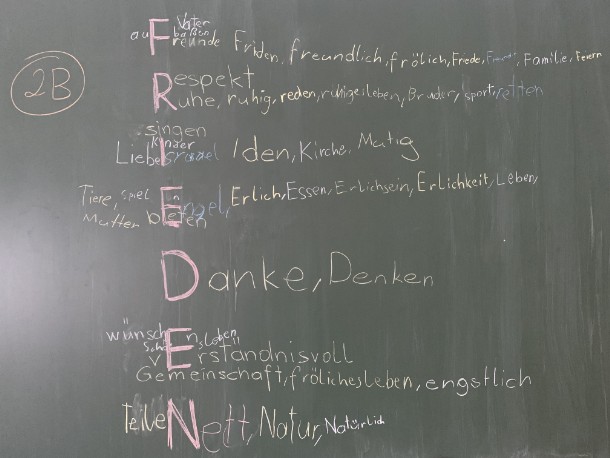 Vater
aufpaßen
Freunde Friden, freundlich, frölich, Frede, Familie, Feiern
2B
Respekt
Ruhe, ruhig, reden, ruhigesleben, Bruder, sport, retten
singen
Kinder
Liebe Israel Iden, Kirche, Mutig
Tiere, spielen Engel, Erlich, Essen, Erlichsein, Erlichkeit, Leben,
Mutter bieten
Danke, Denken
wünschen, Loben
Verständnisvoll
Gemeinschaft, frölichesleben, engstlich
Teilen Nett, Natur, Natürlich